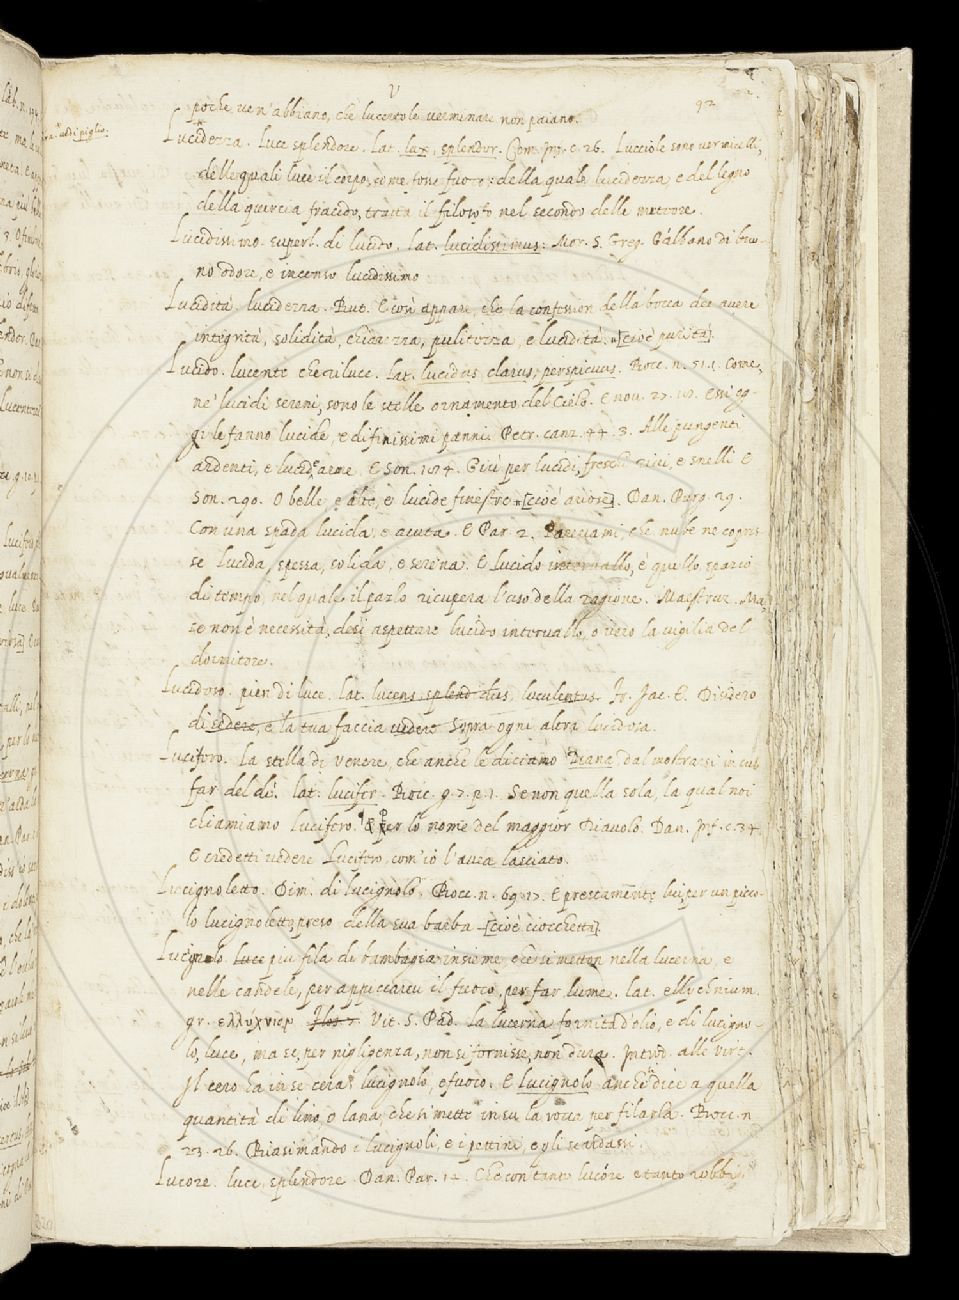 V
92
poche ve n'abbiano, che lucertole verminare non paiano.
vedi piglio.
Lucidezza. Luce splendore. Lat. lux, splendor. Com. Inf. c. 26. Lucciole sono vermicelli,
delle quale luce il corpo, come fono fuoco: della quale lucidezza, e del legno
della quercia fracido, tratta il filosofo nel secondo delle meteore.
Lucidissimo. superl. di lucido. Lat. lucidissimus. Mor. S. Greg. Gálbano di buo-
no odore, e incenso lucidissimo
Lucidità. lucidezza. But. E così appare, che la confession della bocca dee avere
integrità, solidità, chiarezza, pulitezza, e lucidità. [cioè purità].
Lucido. lucente che riluce. Lat. lucidus, clarus, perspicuus. Bocc. n. 51. 1. Come,
ne' lucidi sereni, sono le stelle ornamento del Cielo. E nov. 27.
gi le fanno lucide, e di finissimi panni. Petr. canz. 44. 3. Alle pungenti
ardenti, e lucide arme. E Son. 184. Così per lucidi, freschi rivi, e snelli E
Son. 290. O belle, e alte, e lucide finestre [cioè ariose]. Dan. Purg. 29.
Con una spada lucida, e acuta. E Par. 2. Pareami, che nube ne copris-
se Lucida, spessa, solida, e serena. E Lucido intervallo, è quello spazio
di tempo, nel quale il pazzo ricupera l'uso della ragione. Maestruz. Ma,
se non è necessità, desi aspettare lucido intervallo, o vero la vigilia del
dormitore.
Lucidoso. pien di luce. Lat. lucens, splendidus, luculentus. Fr. Jac. T. Disidero
di sedere, e la tua faccia vedere Sopra ogni altra lucidosa.
Lucifero. La stella di Venere, che anche le diciamo Diana, dal mostrarsi in sul
far del dì. Lat. lucifer. Bocc. g. 7. p. 1. Se non quella sola, la qual noi
chiamiamo Lucifero. E per lo nome del maggior Diavolo. Dan. Inf. c. 34.
E credetti vedere Lucifero, com'io l'avea lasciato.
Lucignoletto. Dim. di lucignolo. Bocc. n. 69. 17. E prestamente lui per un picco-
lo lucignoletto preso della sua barba [cioè ciocchetta]
Lucignolo. Luce più fila di bambagia insieme, che si metton nella lucerna, e
nelle candele, per appiccarvi il fuoco, per far lume. Lat. ellychnium
gr. ελλύχνιον Vit. S. Pad. La lucerna fornita d'olio, e di lucigno-
lo, luce, ma se, per nigligenza, non si fornisse, non dura. Introd. alle virt.
Il cero ha in se cera, lucignolo, e fuoco. E lucignolo anche dice a quella
quantità di lino, o lana, che si mette in su la rocca per filarla. Bocc. n.
23. 26. Biasimando i lucignoli, e i pettini, e gli scardassi.
Lucore. luce, splendore. Dan. Par. 14. Che con tanto lucóre e tanto robbi